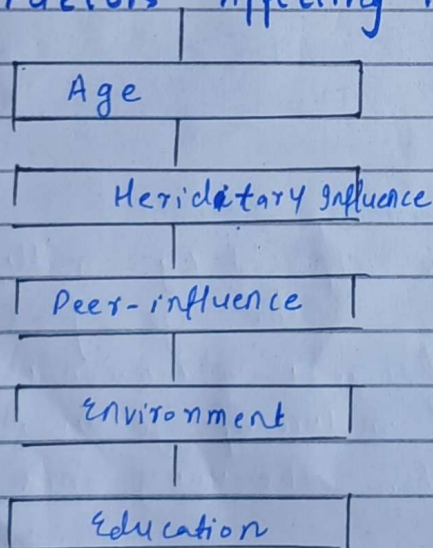 Affecting
Age
Heriditary Influence
Peer-influence
Environment
Education